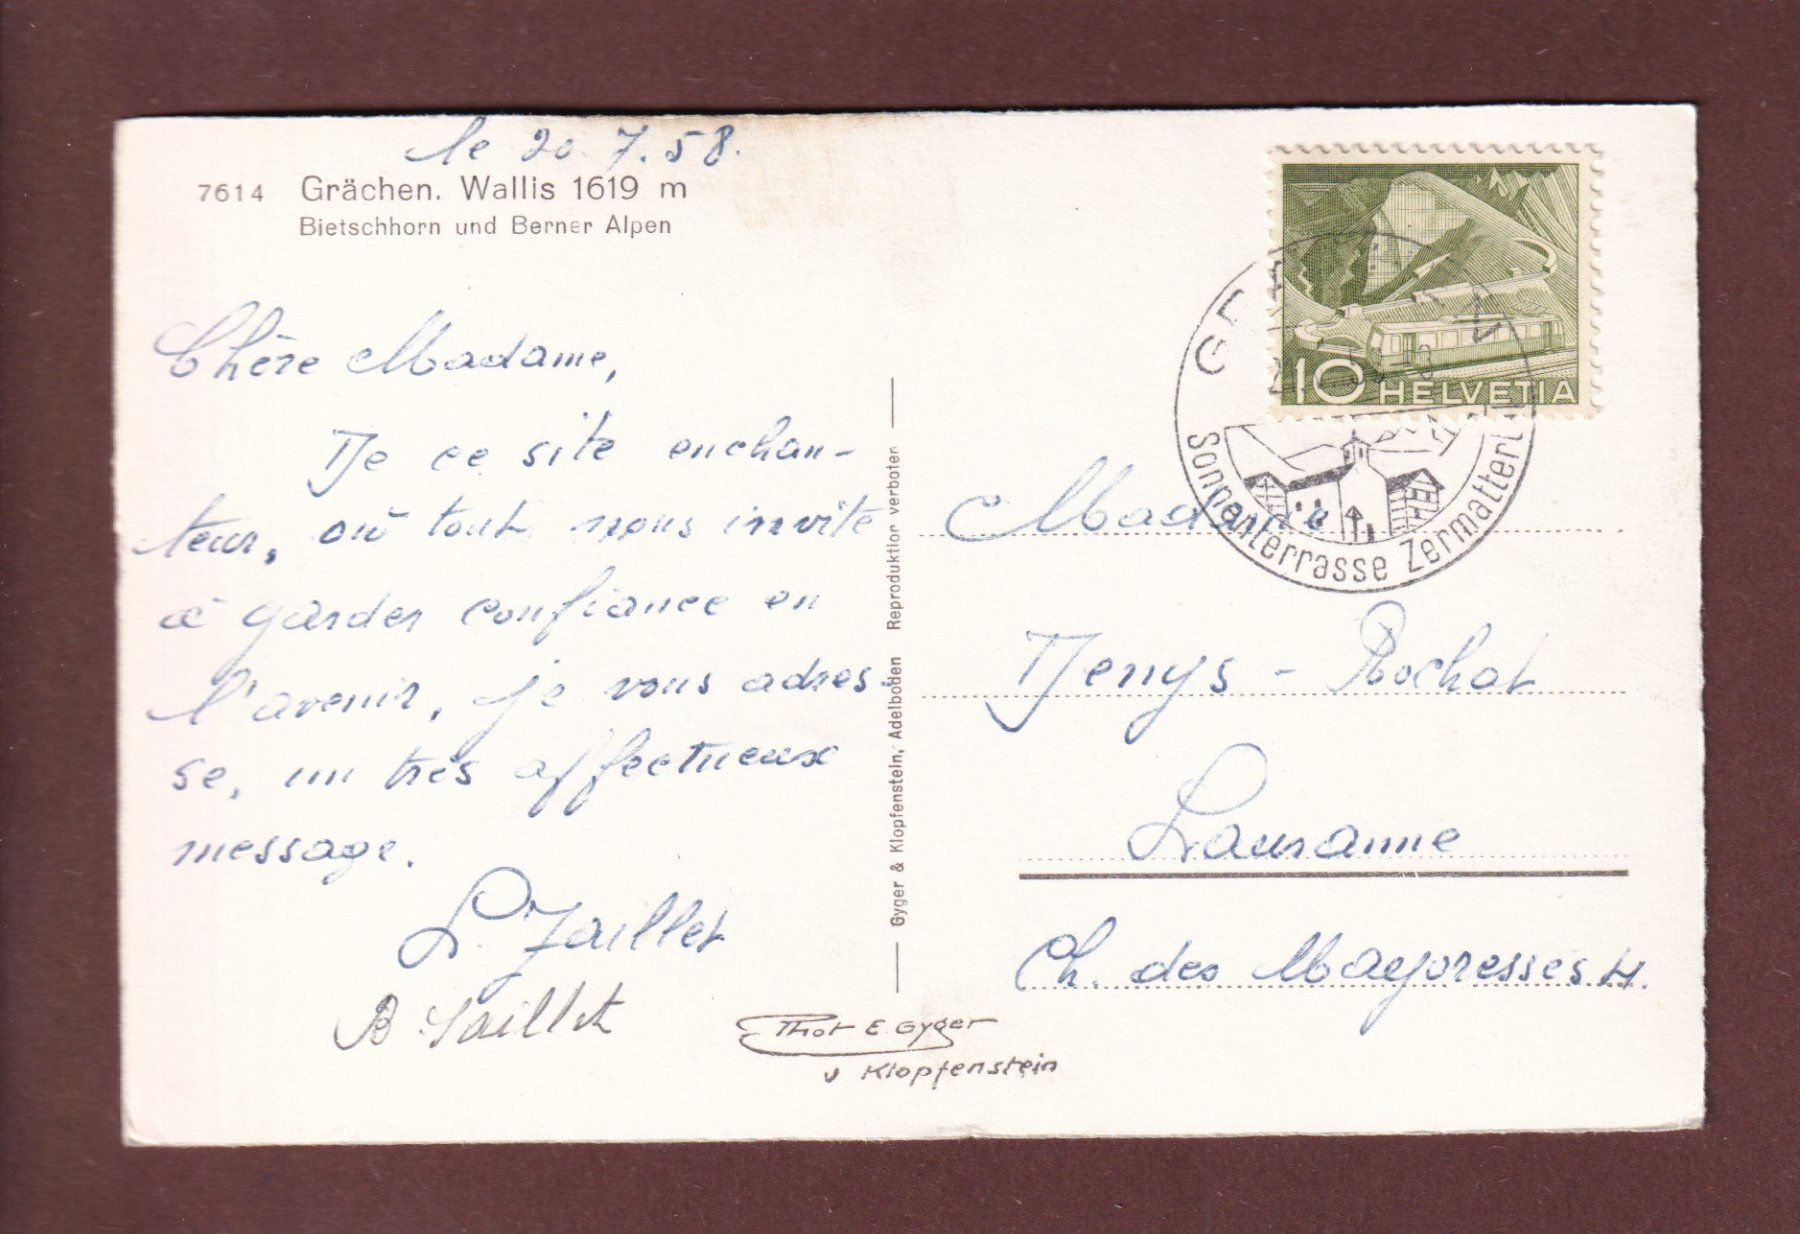 le 20.7.58.
7614 Grächen. Wallis 1619 m
Bietschhorn und Berner Alpen
Chère Madame,
De ce site enchan-
teur, où tout nous invite
à garder confiance en
l'avenir, je vous adres-
se, un très affectueux
message.
L. Jaillet
B. Jaillet
Gyger & Klopfenstein, Adelboden Reproduktion verboten
Phot E Gyger
u Klopfenstein
10 HELVETIA
Sonnenterrasse Zermattertal
Madame
Denys-Rochat
Lausanne
Ch. des Mayoresses 4.